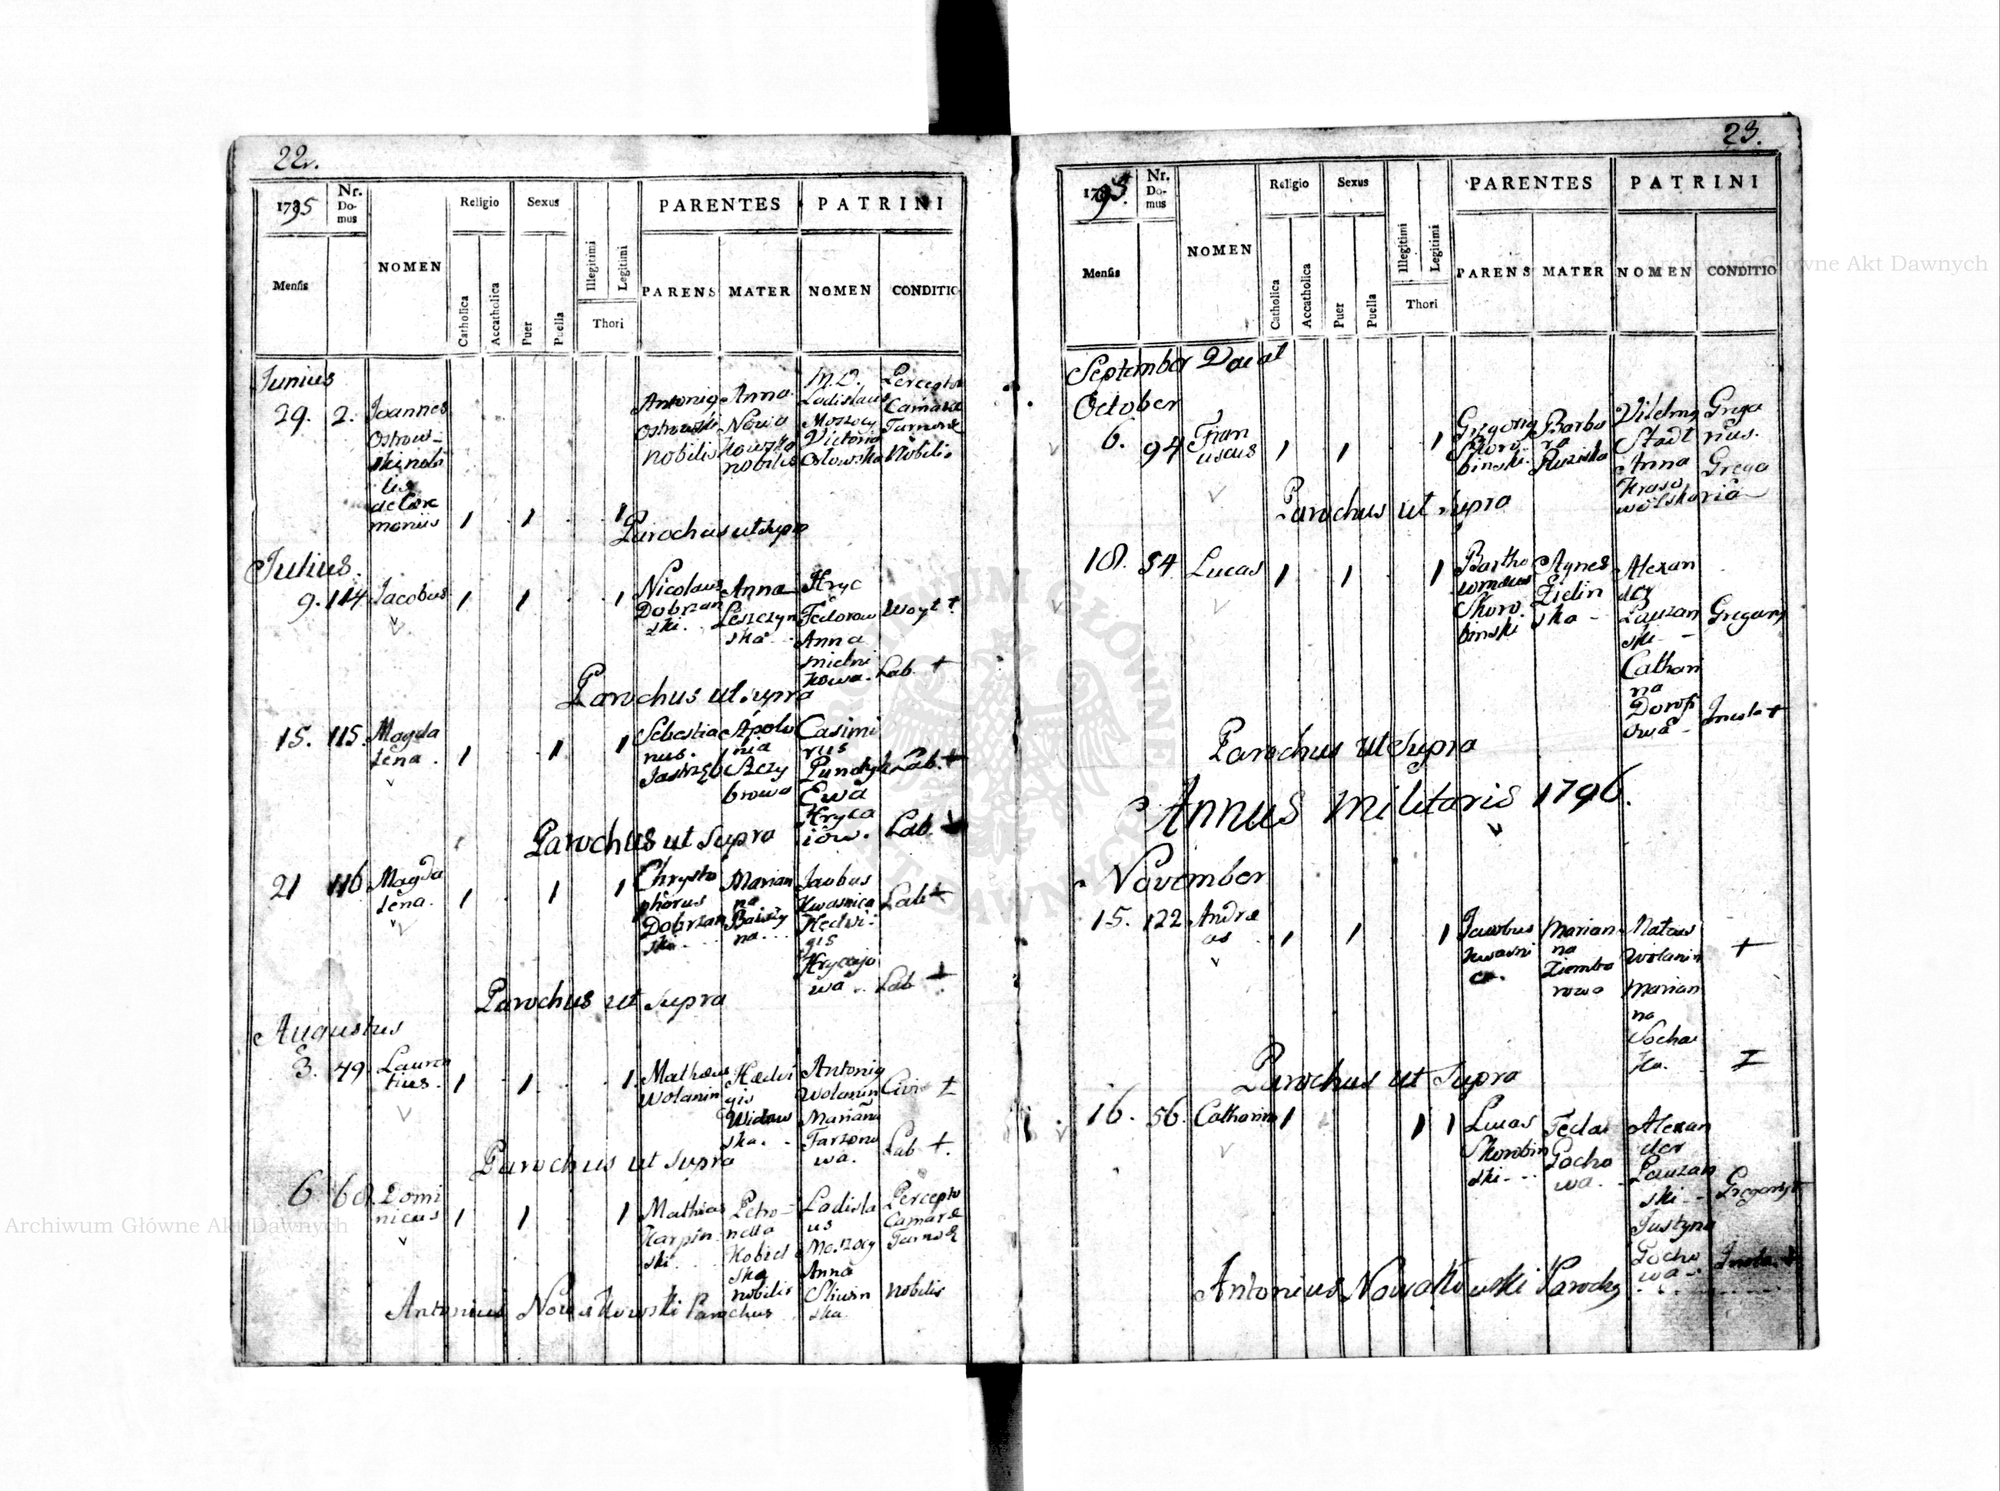 22.
1795
Nr. Domus
Mensis
NOMEN
Religio
Catholica
Accatholica
Sexus
Puer
Puella
Illegitimi
Legitimi
Thori
PARENTES
PARENS
MATER
PATRINI
NOMEN
CONDITIO
Junius
29. 2. Joannes
Ostrow-
ski nobi
lis
de Cære
moniis
1 1 1
Antonig
Ostrowski
nobilis
Anna
Nowa
kowska
nobilis
M.D.
Ladislaus
Moszocy
Victoria
Ostowska
Perceptor
Cameræ
Tarnoræ
Nobilis
Parochus ut supra
Julius.
9. 114 Jacobus 1 1 1
Nicolaus
Dobrzan
ski.
Anna
Leszczyn
ska
Hryc
Fedorow
Anna
mielni
kowa.
Woyt +
Lab. +
Parochus ut supra
15. 115. Magda
lena. 1 1 1
Sebestia
nus.
Jastrzęb
Apolo
nia
Szczy
browa
Casimi
rus
Pundyk
Ewa
Hryca
iow.
Lab. +
Lab. +
Parochus ut supra
21 116 Magda
lena. 1 1 1
Chrysto
phorus
Dobrzan
ski
Marian
na
na.
Jacobus
Kwasnica
Hedwi-
gis
Hrycayo
wa
Lab +
Lab +
Parochus ut supra
Augustus
3. 49. Lauren
tius. 1 1 1
Mathæus
Wolanin
Hedwi
gis
Widaw
ska.
Antonig
Wolanin
Marianna
Tarzono
wa.
Civis +
Lab +.
Parochus ut supra
6 60. Domi
nicus 1 1 1
Mathias
Karpin
ski
Petro-
nella
Kobiel
ska
nobilis
Ladisla
us
Moszocy
Anna
Sliwin
ska.
Percepto
Cameræ
Tarnoræ
nobilis
Antonius Nowakowski Parochus
23.
1795.
Nr. Domus
Mensis
NOMEN
Religio
Catholica
Accatholica
Sexus
Puer
Puella
Illegitimi
Legitimi
Thori
PARENTES
PARENS
MATER
PATRINI
NOMEN
CONDITIO
September Vacat
October
6. 94 Fran
ciscus 1 1 1
Gregorig
Skoro
binski.
Barba
ra
Ruziska
Vilelmg
Stadt
Anna
Kraso
wolska
Grega
rius.
Grega
ria
Parochus ut supra
18. 54. Lucas 1 1 1
Bartho
lomæus
Skoro
binski
Agnes
Zielin
ska
Alexan
der
Lauzan
ski
Cathari
na
Dorofi
owa
Gregarg
Incola +
Parochus ut supra
Annus Militaris 1796.
November
15. 122 Andræ
as 1 1 1
Jacobus
Kwasni
ca.
Marian
na
Ziembo
rowa
Mateus
Wolanin
Marian
na
Socha
+
Parochus ut supra
16. 56. Catharina 1 1 1
Lucas
Skorobin
ski
Tecla
Gocho
wa.
Alexan
der
Lauzan
ski
Justyna
Gocho
wa
Gregarg +
Incola +
Antonius Nowakowski Parochg
Archiwum Główne Akt Dawnych
Archiwum Główne Akt Dawnych
ARCHIWUM GŁÓWNE AKT DAWNYCH